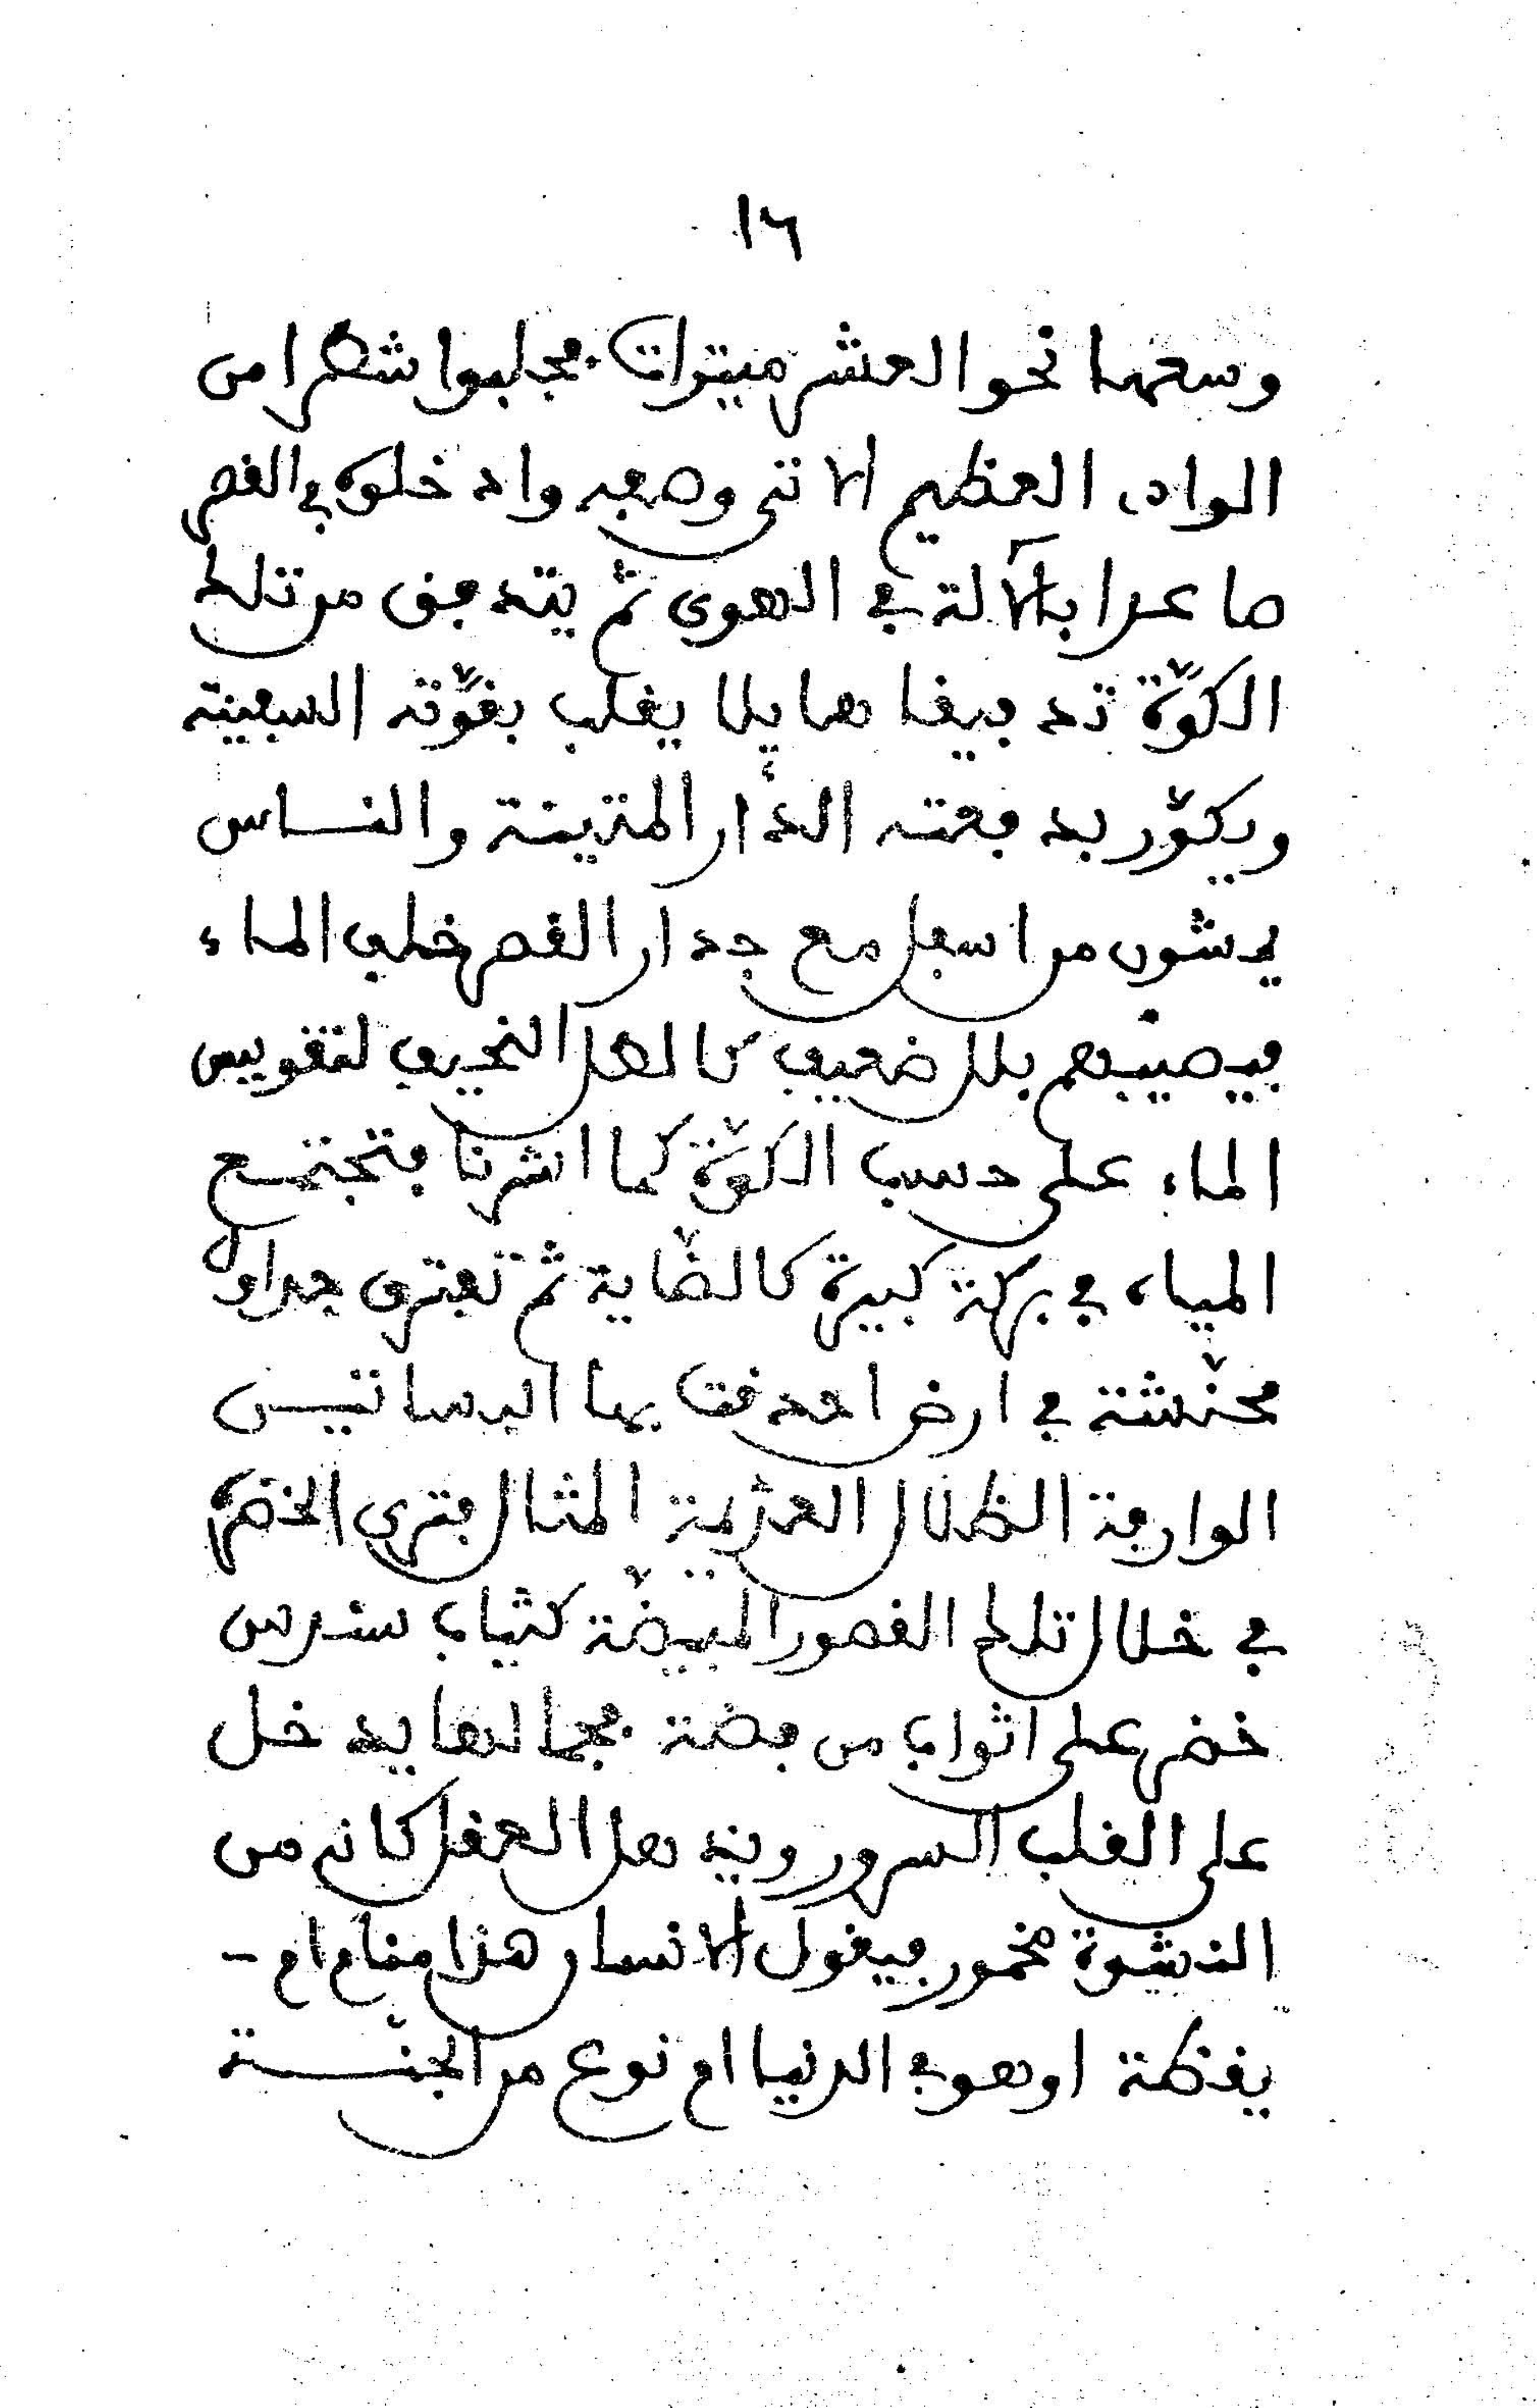 ١٦
وسعها نحو العشر ميترات فجلبوا شطرا من
الوادى العظيم الاتى وصفه وادخلوه في القصر
صاعدا بالآلة في الهوى ثم يتدفق من تلك
الكوّة تدفيقا هايلا يقلب بقوّته السفينة
ويكوّر بدفعته الدّار المتينة والنساس
يمشون من اسفل مع جدار القصر خلف الماء
فيصيبهم بلل ضعيف كالطل النحيف لتقويس
الماء على حسب الكوّة كما اشرنا فتجتمع
المياه في بركة كبيرة كالضّاية ثم تفترق جداول
محنّشة في ارض احدقت بها البساتيـن
الوارفة الظلال العديمة المثال فترى الخضرة
في خلال تلك القصور المبيضّة كثياب سندس
خضر على اثواب من فضة فجمالها يدخل
على القلب السرور ويذهل العقل كانه من
النشوة مخمور فيقول الانسان هذا منام ام -
يقظة اوهو في الدنيا ام نوع من الجنّــة